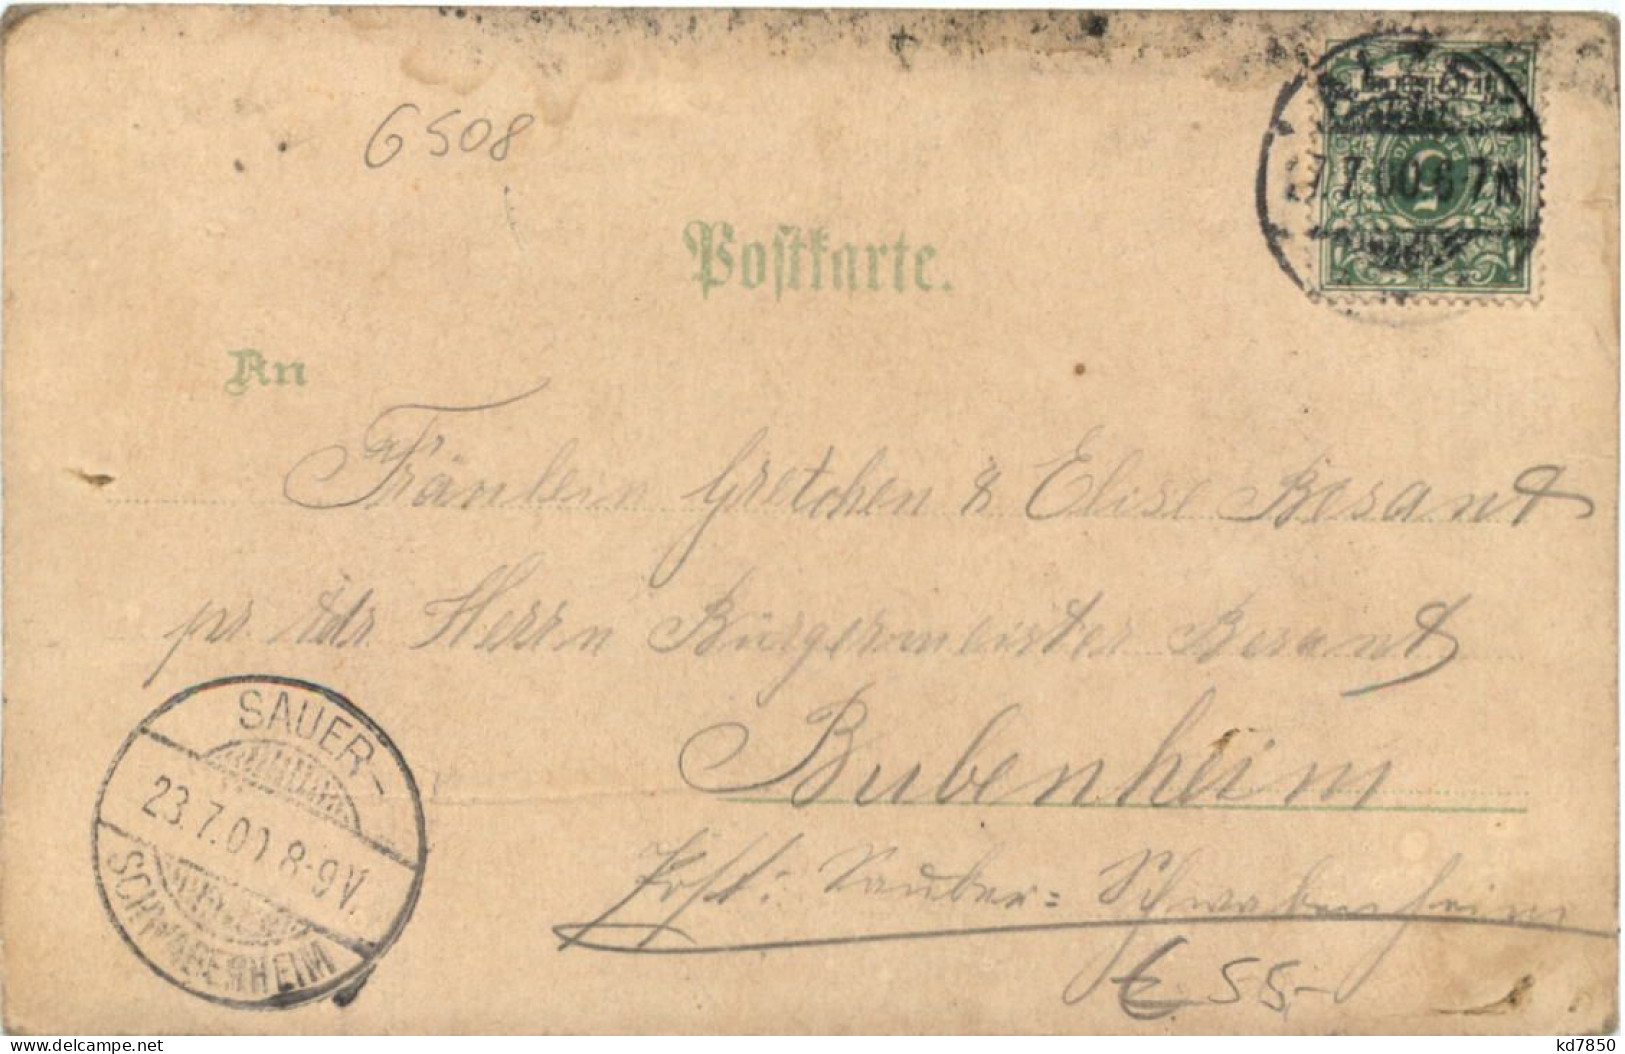 G 508
5
7.00.6-7N
Postkarte.
An
Fräulein Gretchen & Elise Besant
pr. Adr. Herrn Bürgermeister Besant
Bubenheim
Post: Sauber=Schwabenheim
SAUER-
23.7.00 8-9V.
SCHWABENHEIM
E 55-
delcampe.net
kd7850